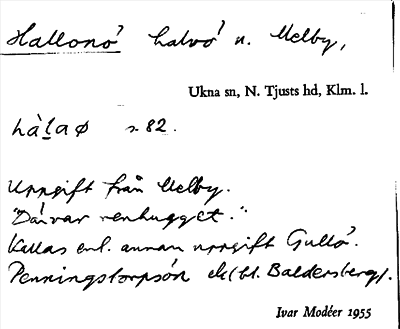 Hallonö halvö u. Melby,
Ukna sn, N. Tjusts hd, Klm. l.
hàlaø s. 82.
Uppgift från Melby.
"Då var renhugget."
Kallas enl. annan uppgift Gullö.
Penningstorpsön ek(bl. Baldersberg).
Ivar Modéer 1955